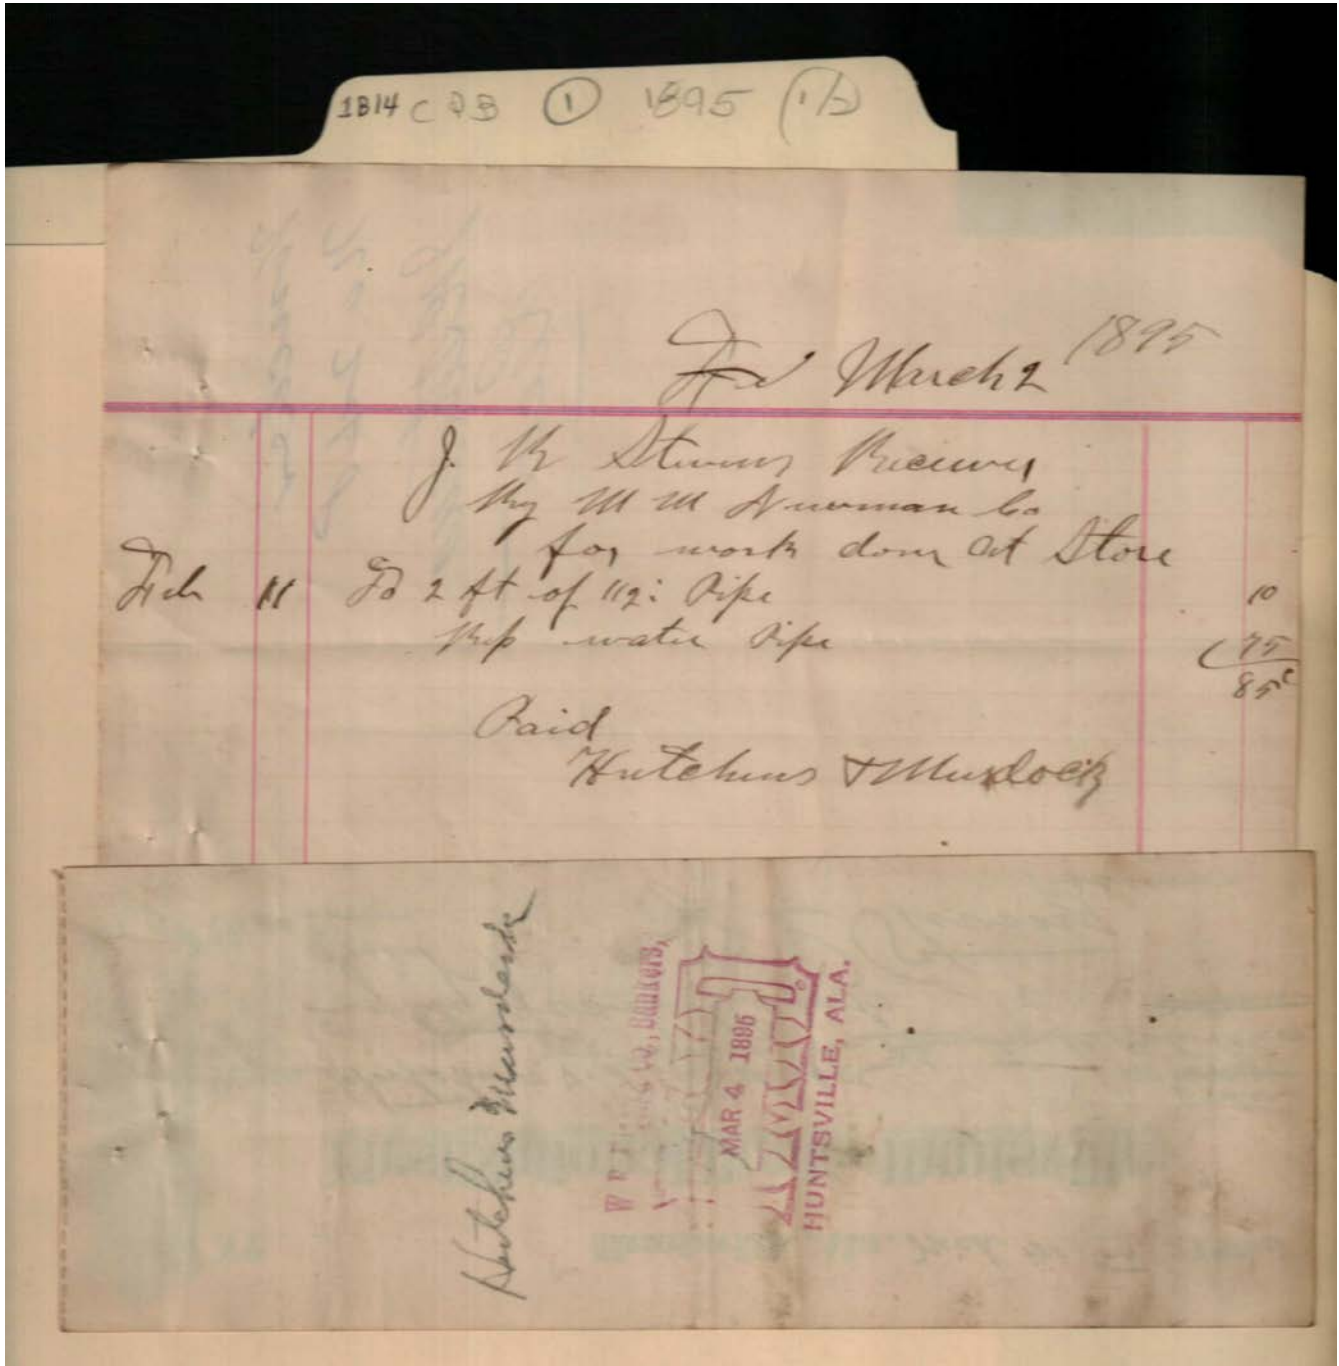 1B14 C D B ① 1895 (1/2)
March 2 1895
J. R Stevens Receiver
M M Newman Co
for work done at Store
Feb 11 To 2 ft of 1/2 i Pipe 10
Rep water Pipe 75
85c
Paid
Hutchens & Murdock
Hutchens & Murdock
Co, Bankers,
MAR 4 1895
HUNTSVILLE, ALA.